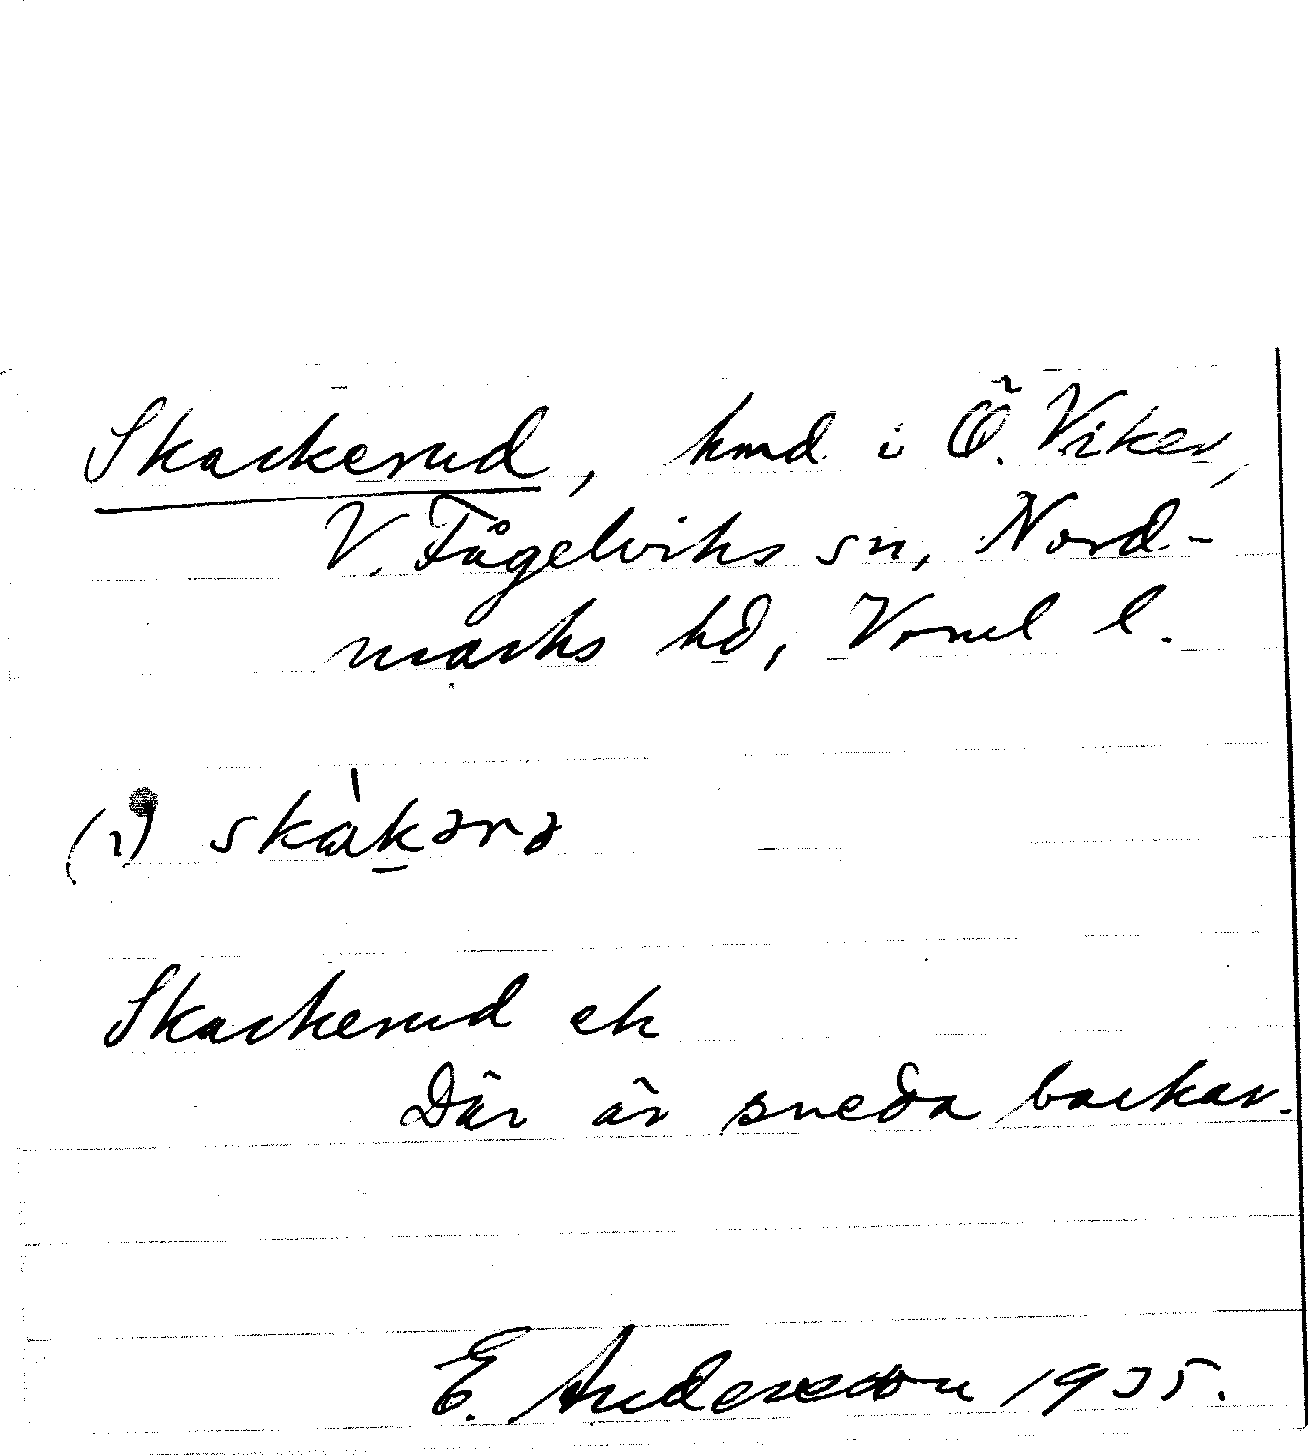 Skackerud, hmd i Ö. Viker,
V. Fågelviks sn, Nord-
marks hd, Vrml l.
(i) skàkərə
Skackerud ek
Där är sneda backar.
E. Andersson 1935.